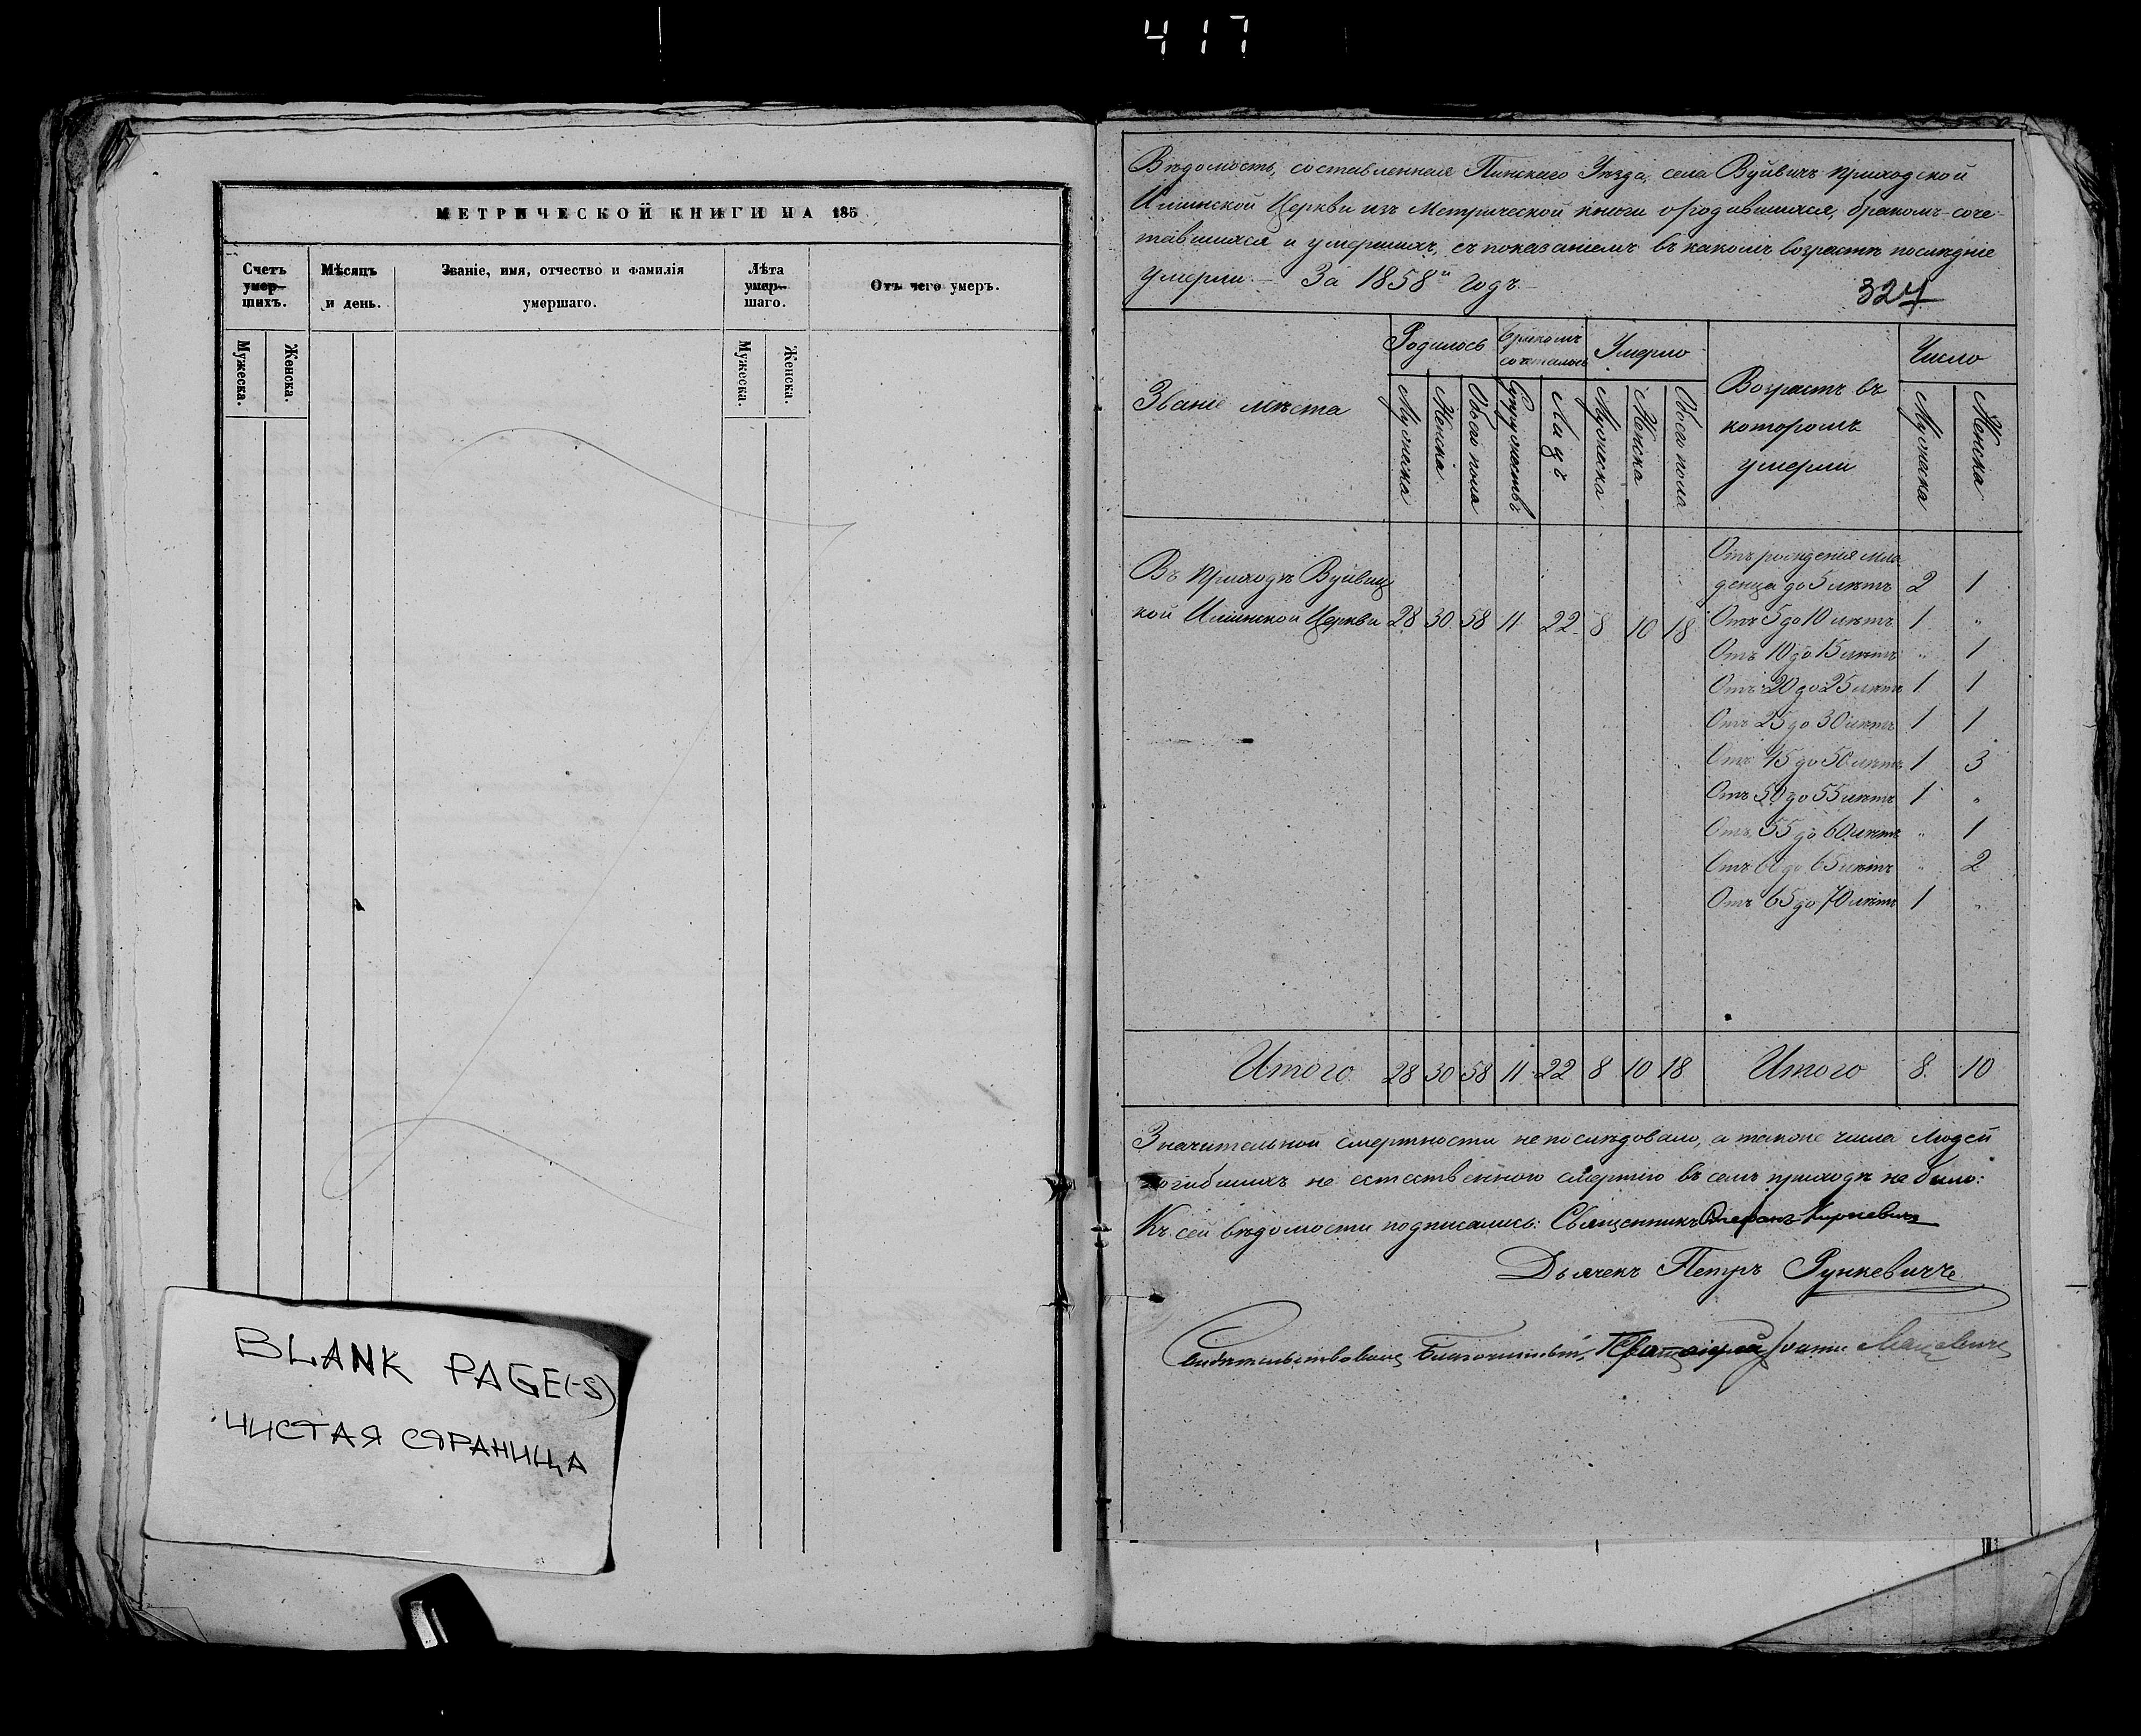 417
МЕТРИЧЕСКОЙ КНИГИ НА 185
Счетъ умер- шихъ.
Мѣсяцъ и день.
Званіе, имя, отчество и фамилія умершаго.
Лѣта умер- шаго.
Отъ чего умеръ.
Мужеска.
Женска.
Мужеска.
Женска.
BLANK PAGE(-S)
ЧИСТАЯ СТРАНИЦА
Вѣдомость, составленная Пинскаго Уѣзда, села Вуйвичъ приходской
Илiинской Церкви изъ Метрической книги о родившихся, бракомъ соче-
тавшихся и умершихъ, съ показаніемъ въ какомъ возрастѣ послѣдніе
умерли. — За 1858й годъ. —
327
Званіе мѣста
Родилось
Бракомъ сочеталось
Умерло
Возрастъ въ которомъ умерли
Число
Мужеска
Женска
Обоего пола
Супружествъ
Лицъ
Мужеска
Женска
Обоего пола
Мужеска
Женска
Въ приходѣ Вуйвиц
кой Илiинской Церкви 28 30 58 11 22 8 10 18
Отъ рожденія мла
денца до 5 лѣтъ 2 1
Отъ 5 до 10 лѣтъ 1 "
Отъ 10 до 15 лѣтъ " 1
Отъ 20 до 25 лѣтъ 1 1
Отъ 25 до 30 лѣтъ 1 1
Отъ 45 до 50 лѣтъ 1 3
Отъ 50 до 55 лѣтъ 1 "
Отъ 55 до 60 лѣтъ " 1
Отъ 60 до 65 лѣтъ " 2
Отъ 65 до 70 лѣтъ 1 "
Итого 28 30 58 11 22 8 10 18 Итого 8 10
Значительной смертности не послѣдовало, а также числа людей
погибшихъ не естественною смертію въ семъ приходѣ не было:
Къ сей вѣдомости подписались: Священникъ Стефанъ Киркевичъ
Дьячекъ Петръ Рункевичъ
Свидѣтельствовалъ Благочинный, Iоаннъ Мацкевичъ